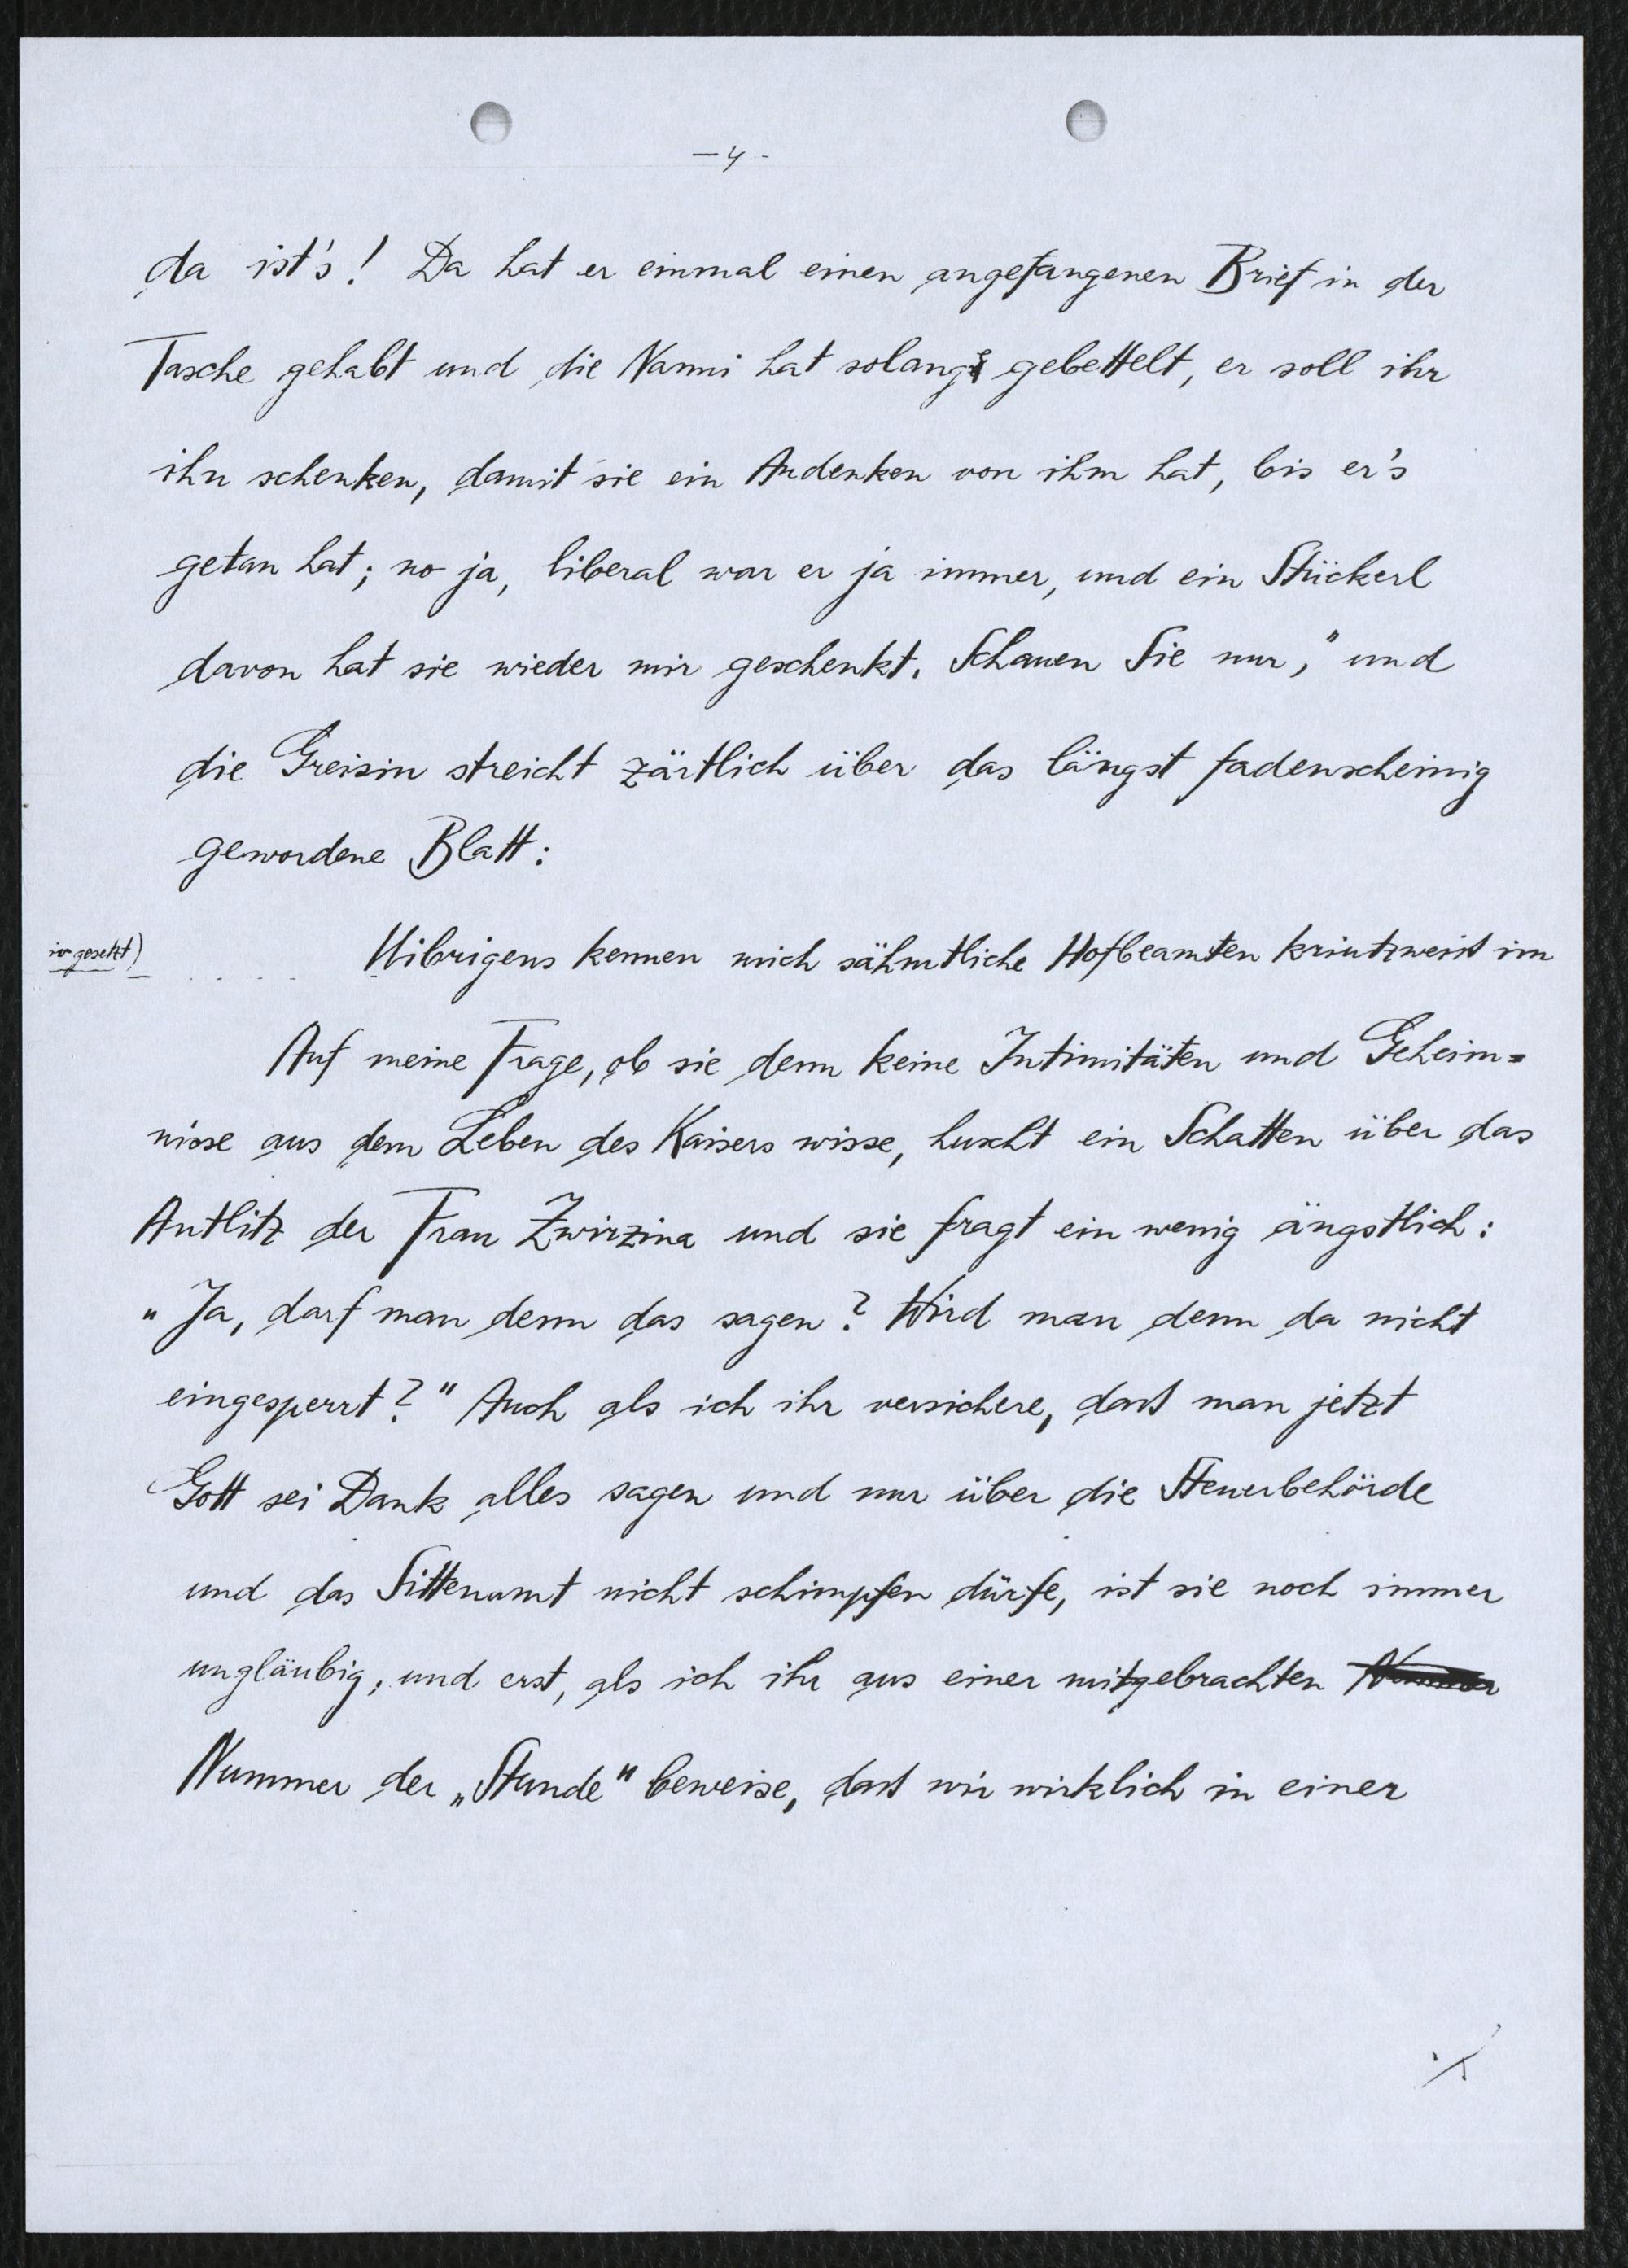 — 4 -
da ist's! Da hat er einmal einen angefangenen Brief in der
Tasche gehabt und die Nanni hat solang gebettelt, er soll ihr
ihn schenken, damit sie ein Andenken von ihm hat, bis er's
getan hat; no ja, liberal war er ja immer, und ein Stückerl
davon hat sie wieder mir geschenkt. Schauen Sie nur," und
die Greisin streicht zärtlich über das längst fadenscheinig
gewordene Blatt:
gesetzt) Uibrigens kennen mich sähmtliche Hofbeamten im
Auf meine Frage, ob sie denn keine Intimitäten und Geheim=
nisse aus dem Leben des Kaisers wisse, huscht ein Schatten über das
Antlitz der Frau Zwirzina und sie fragt ein wenig ängstlich:
„Ja, darf man denn das sagen? Wird man denn da nicht
eingesperrt?" Auch als ich ihr versichere, daß man jetzt
Gott sei Dank alles sagen und nur über die Steuerbehörde
und das Sittenamt nicht schimpfen dürfe, ist sie noch immer
ungläubig, und erst, als ich ihr aus einer mitgebrachten
Nummer der „Stunde" beweise, daß wir wirklich in einer
./.